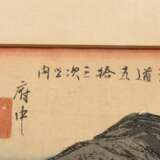 道五拾三次之内
府中